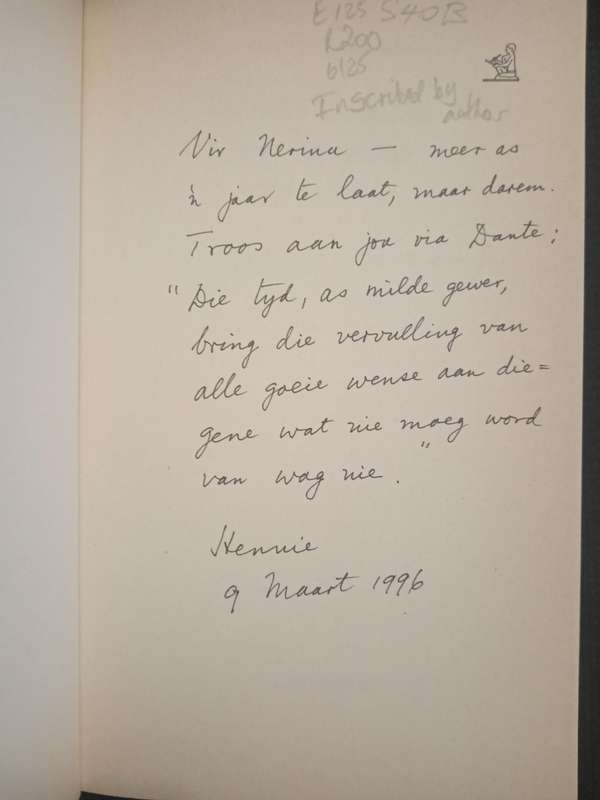 E125 S40B
R200
6125
Inscribed by
author
Vir Nerina — meer as
'n jaar te laat, maar darem.
Troos aan jou via Dante:
"Die tyd, as milde gewer,
bring die vervulling van
alle goeie wense aan die=
gene wat nie moeg word
van wag nie."
Hennie
9 Maart 1996